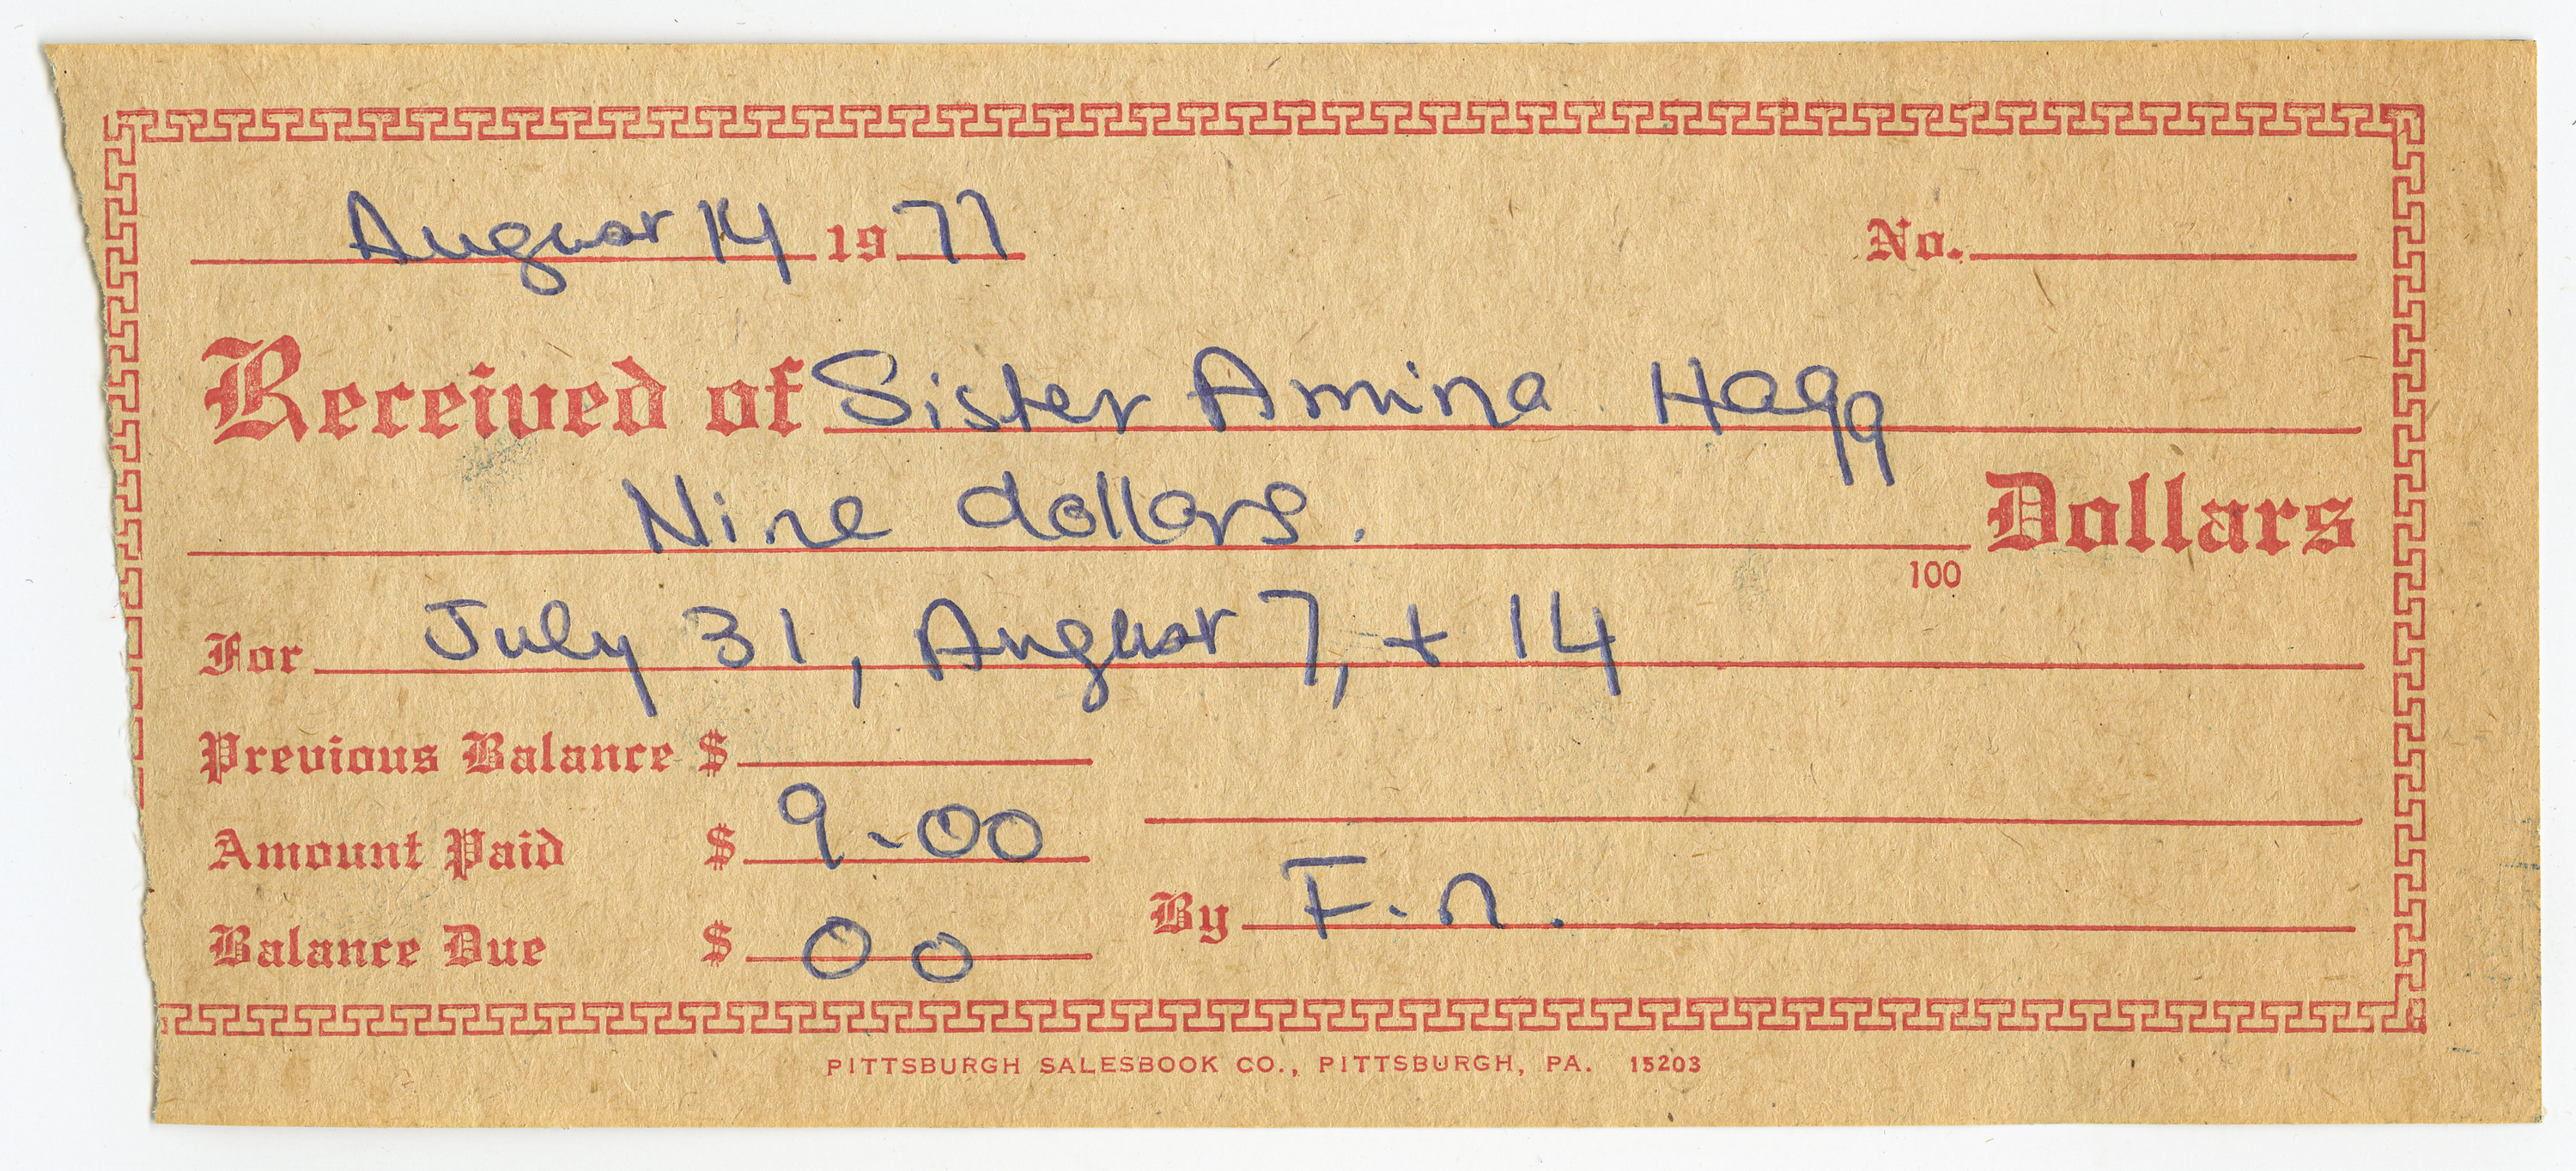 August 14 1977 No.
Received of Sister Amina Haqq
Nine dollars. Dollars
100
For July 31, August 7, + 14
Previous Balance $
Amount Paid $ 9.00
Balance Due $ 00
By F.n.
PITTSBURGH SALESBOOK CO., PITTSBURGH, PA. 15203